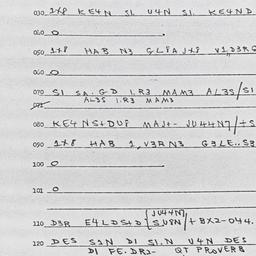 030 1×8 KE4N SL U4N SL KE4ND
040 0
050 1×8 HAB N3 GL8A J×8 V1D3RG
060 0
070 SI SA.GD I.R3 MAM3 AL3S/SI
AL3S I.R3 MAM3
080 KE4NS+DU8 MAJ+- JU44N7/+S
090 1×8 HAB 1, V3RN3 G3LE..S3
100 0
101 0
110 D3R E4LDS+D {JU44N7, SU8N}/+8X2-044.
120 DES S1N DI SI.N U4N DES
DI FE.DR2- QT PROVERB